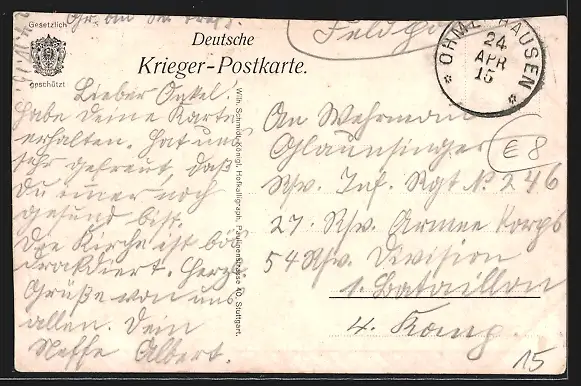 Gesetzlich
geschützt
Deutsche
Krieger-Postkarte.
Wilh. Schmidt, Königl. Hofkalligraph, Paulinenstrasse 10, Stuttgart.
OHMENHAUSEN
24
APR
15
Lieber Onkel!
Habe deine Karte
erhalten. Hat uns
sehr gefreut, daß
Du immer noch
gesund bist.
Die Kirche ist
Herzl.
Grüße von uns
allen. Dein
Neffe Albert.
Feldpost
An Wehrmann
Glaunsinger
Rsv. Inf. Rgt No 246
27. Rsv. Armee Korps
54 Rsv. Division
1. Bataillon
4. Komp.
€8
15